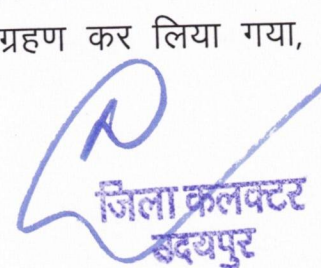 ग्रहण कर लिया गया,
जिला कलक्टर
उदयपुर